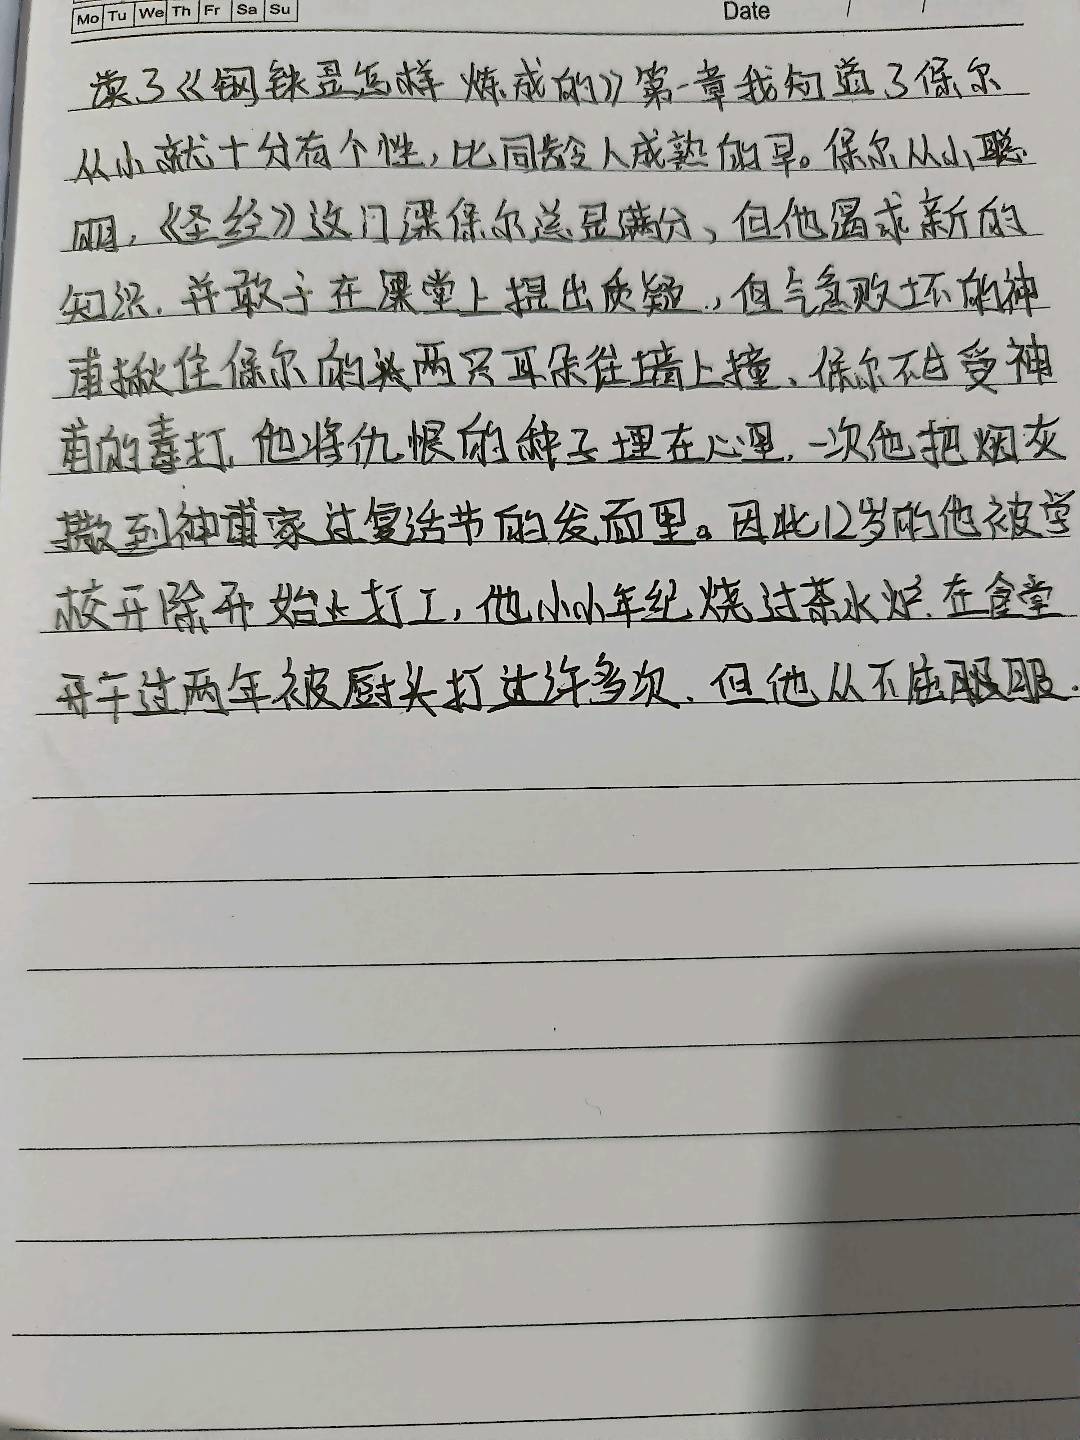 Mo Tu We Th Fr Sa Su Date / /
读了《钢铁是怎样炼成的》第一章我知道了保尔
从小就十分有个性,比同龄人成熟的早。保尔从小聪
明,《圣经》这门课保尔总是满分、但他渴求新的
知识.并敢于在课堂上提出质疑.,但气急败坏的神
甫揪住保尔的两只耳朵往墙上撞、保尔不白受神
甫的毒打,他将仇恨的种子埋在心里.一次他把烟灰
撒到神甫家过复活节的发面里。因此12岁的他被学
校开除开始打工,他小小年纪烧过茶水炉.在食堂
干过两年被厨头打过许多次.但他从不屈服.